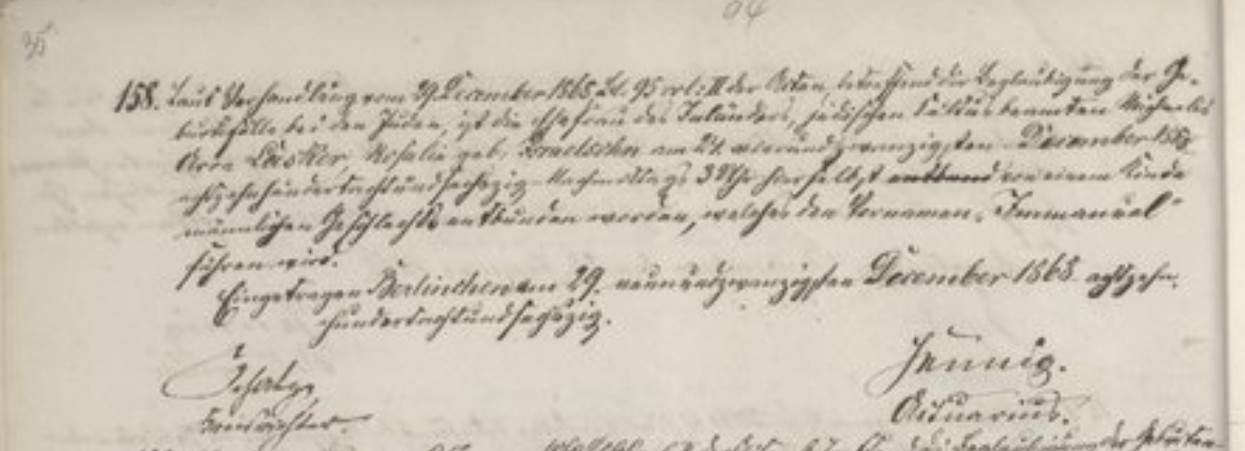 35
94
158. Laut Verhandlung vom 29. December 1868 Bl. 95 vol: II der Acten, betreffend die Beglaubigung der Ge-
burtsfälle bei den Juden, ist die Ehefrau des Inländers, jüdischen Kultusbeamten Michaelis
Aron Lasker, Rosalie geb. Israelsohn am 24. vierundzwanzigsten December 1868
achtzehnhundertachtundsechszig Nachmittags 3 Uhr hierselbst entbund von einem Kinde
männlichen Geschlechts entbunden worden, welches den Vornamen "Immanuel"
führen wird.
Eingetragen Berlinchen am 29. neunundzwanzigsten December 1868 achtzehn-
hundertachtundsechszig.
Hennig.
Kreisrichter. Actuarius.
der Geburten-